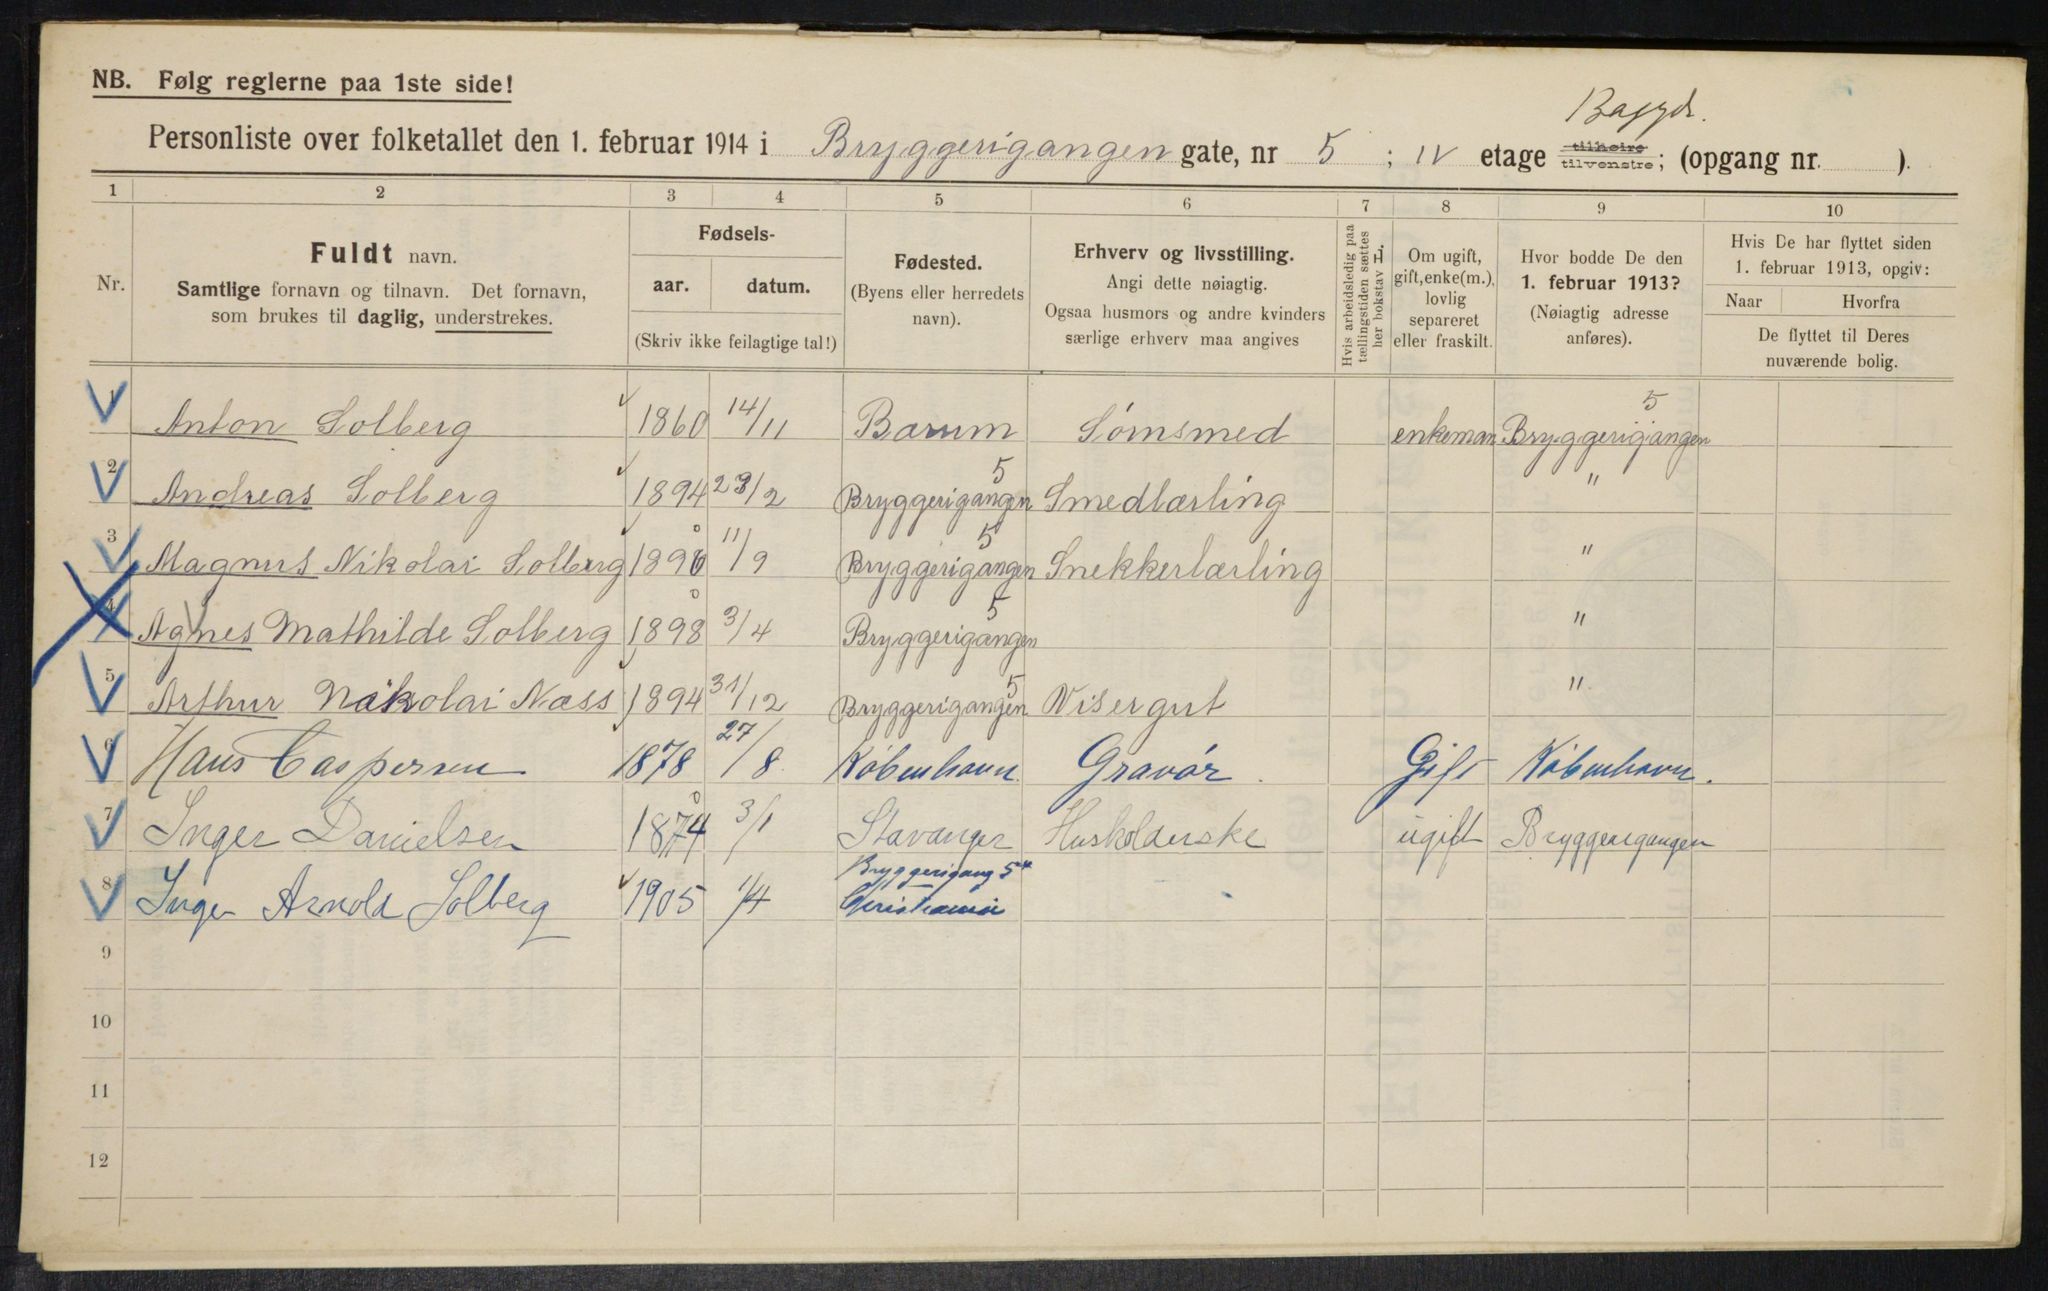 NB. Følg reglerne paa 1ste side!
Baggd.
Personliste over folketallet den 1. februar 1914 i Bryggerigangen gate, nr 5 ; IV etage tilhøire tilvenstre; (opgang nr. ).
1 2 3 4 5 6 7 8 9 10
Nr.
Fuldt navn.
Samtlige fornavn og tilnavn. Det fornavn,
som brukes til daglig, understrekes.
Fødsels-
aar. datum.
(Skriv ikke feilagtige tal!)
Fødested.
(Byens eller herredets
navn).
Erhverv og livsstilling.
Angi dette nøiagtig.
Ogsaa husmors og andre kvinders
særlige erhverv maa angives
Hvis arbeidsledig paa
tællingstiden sættes
her bokstav L.
Om ugift,
gift, enke(m.),
lovlig
separeret
eller fraskilt.
Hvor bodde De den
1. februar 1913?
(Nøiagtig adresse
anføres).
Hvis De har flyttet siden
1. februar 1913, opgiv:
Naar Hvorfra
De flyttet til Deres
nuværende bolig.
1 Anton Solberg 1860 14/11 Barum Sømsmed enkeman Bryggerigangen 5
2 Andreas Solberg 1894 23/2 Bryggerigangen 5 Smedlærling "
3 Magnus Nikolai Solberg 1896 11/9 Bryggerigangen 5 Snekkerlærling "
4 Agnes Mathilde Solberg 1898 3/4 Bryggerigangen 5 "
5 Arthur Nikolai Næss 1894 31/12 Bryggerigangen 5 Visergut "
6 Hans Caspersen 1878 27/8 København Gravør. Gift København.
7 Inger Danielsen 1874 3/1 Stavanger Husholderske ugift Bryggerigangen
8 Inger Arnold Solberg 1905 1/4 Bryggerigang 5 Christiania
9
10
11
12